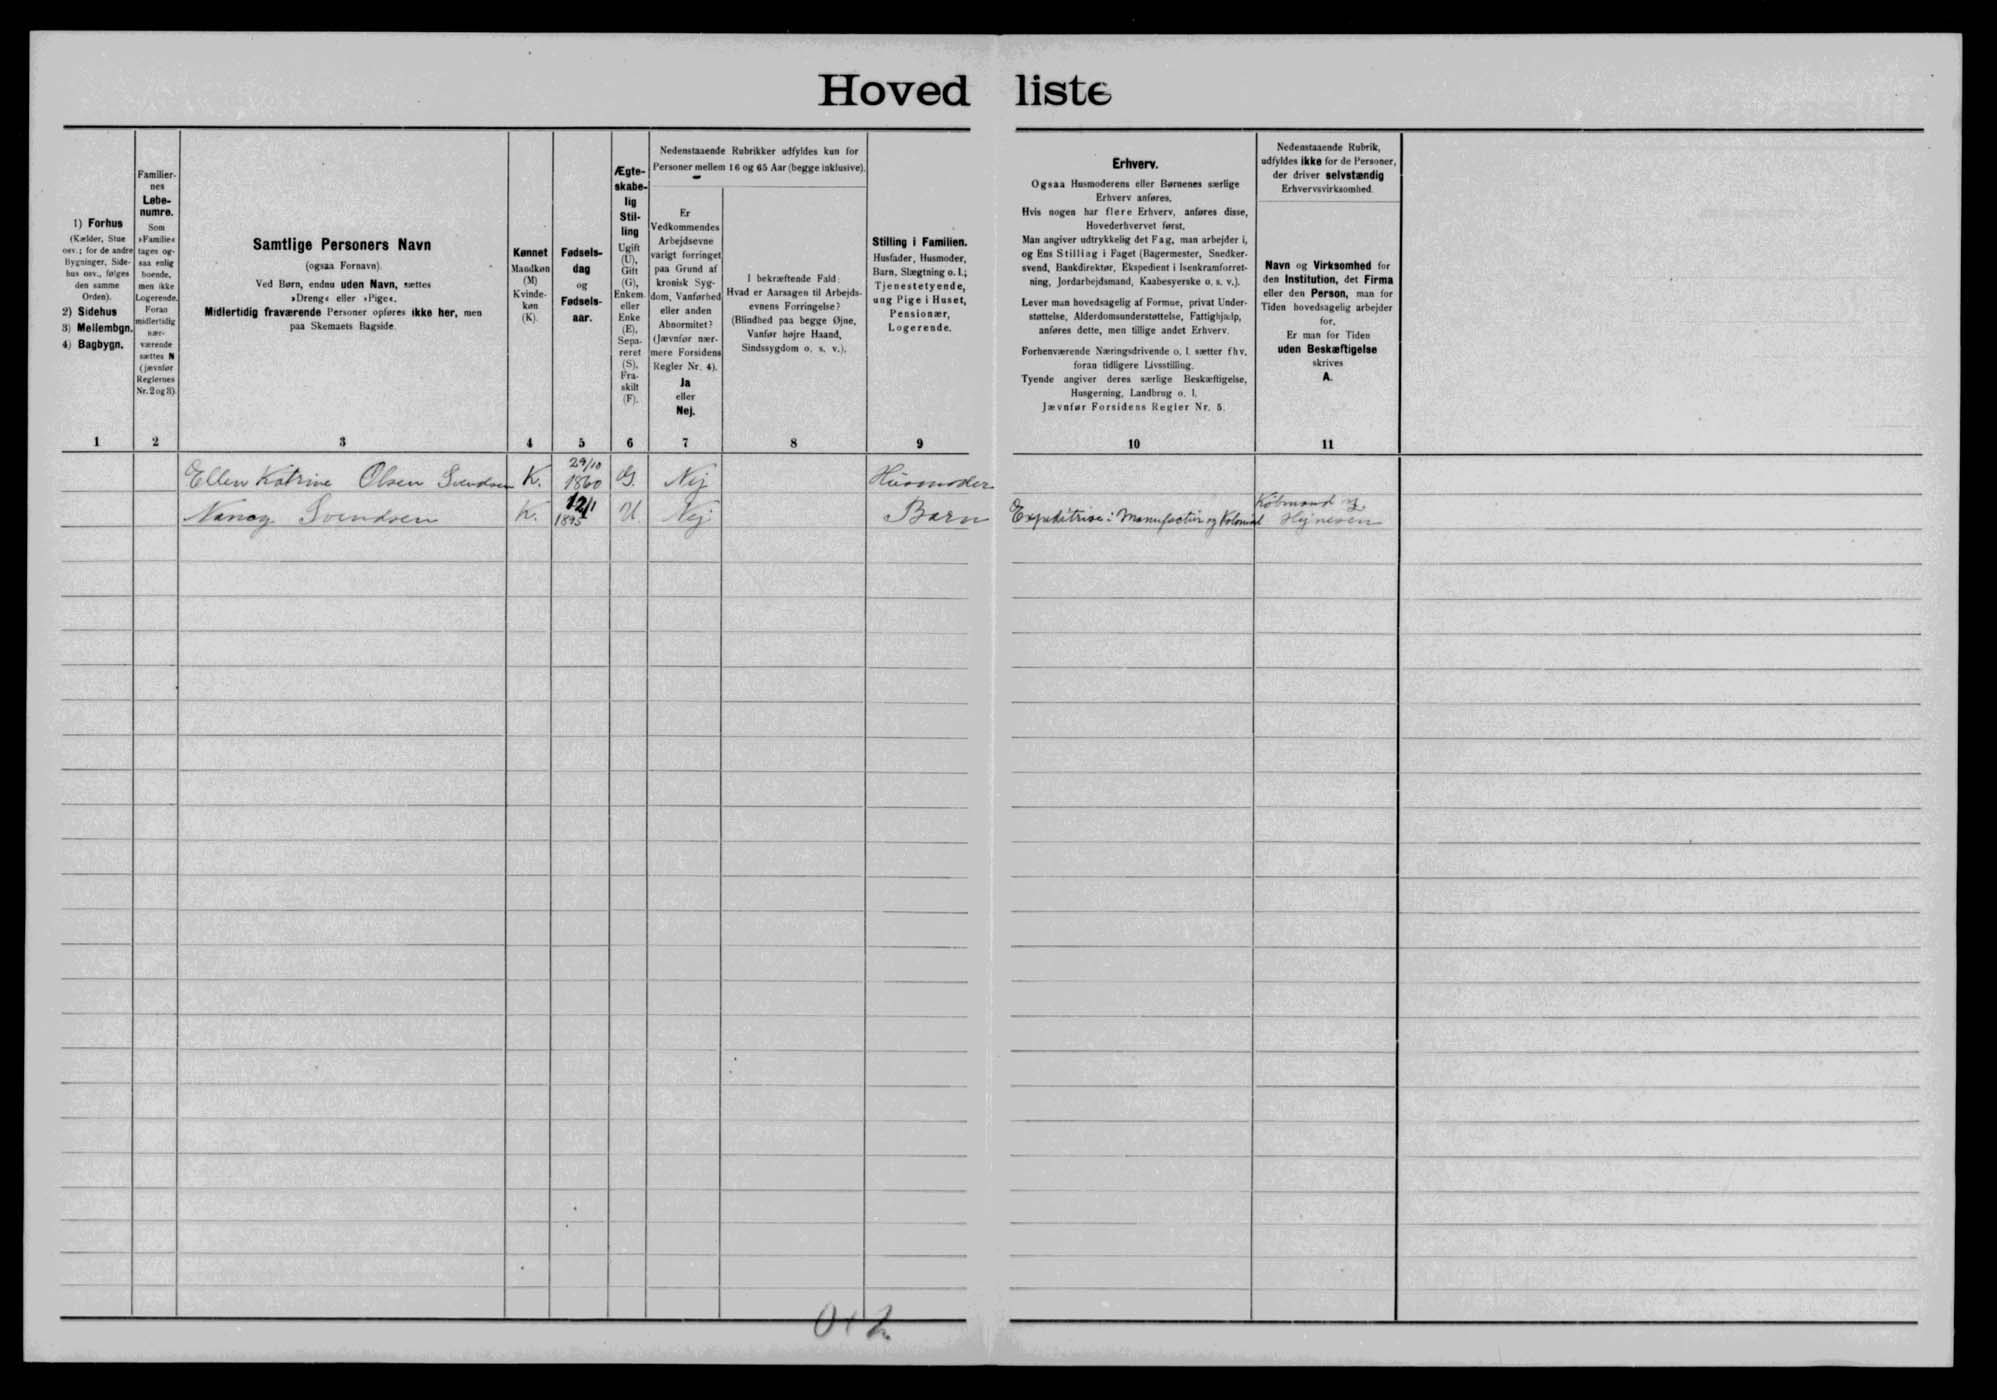 Hovedliste
1) Forhus
(Kælder, Stue
osv.; for de andre
Bygninger, Side-
hus osv., følges
den samme
Orden).
2) Sidehus
3) Mellembgn.
4) Bagbygn.
1
Familier-
nes
Løbe-
numre.
Som
»Familie«
tages og-
saa enlig
boende,
men ikke
Logerende.
Foran
midlertidig
nær-
værende
sættes N
(jævnfør
Reglernes
Nr. 2 og 3)
2
Samtlige Personers Navn
(ogsaa Fornavn).
Ved Børn, endnu uden Navn, sættes
»Dreng« eller »Pige«.
Midlertidig fraværende Personer opføres ikke her, men
paa Skemaets Bagside.
3
Kønnet
Mandkøn
(M)
Kvinde-
køn
(K).
4
Fødsels-
dag
og
Fødsels-
aar.
5
Ægte-
skabe-
lig
Stil-
ling
Ugift
(U),
Gift
(G),
Enkem.
eller
Enke
(E),
Sepa-
reret
(S),
Fra-
skilt
(F).
6
Nedenstaaende Rubrikker udfyldes kun for
Personer mellem 16 og 65 Aar (begge inklusive).
Er
Vedkommendes
Arbejdsevne
varigt forringet
paa Grund af
kronisk Syg-
dom, Vanførhed
eller anden
Abnormitet?
(Jævnfør nær-
mere Forsidens
Regler Nr. 4).
Ja
eller
Nej.
7
I bekræftende Fald:
Hvad er Aarsagen til Arbejds-
evnens Forringelse?
(Blindhed paa begge Øjne,
Vanfør højre Haand,
Sindssygdom o. s. v.).
8
Stilling i Familien.
Husfader, Husmoder,
Barn, Slægtning o. l.;
Tjenestetyende,
ung Pige i Huset,
Pensionær,
Logerende.
9
Erhverv.
Ogsaa Husmoderens eller Børnenes særlige
Erhverv anføres.
Hvis nogen har flere Erhverv, anføres disse,
Hovederhvervet først.
Man angiver udtrykkelig det Fag, man arbejder i,
og Ens Stilling i Faget (Bagermester, Snedker-
svend, Bankdirektør, Ekspedient i Isenkramforret-
ning, Jordarbejdsmand, Kaabesyerske o. s. v.).
Lever man hovedsagelig af Formue, privat Under-
støttelse, Alderdomsunderstøttelse, Fattighjælp,
anføres dette, men tillige andet Erhverv.
Forhenværende Næringsdrivende o. l. sætter fhv.
foran tidligere Livsstilling.
Tyende angiver deres særlige Beskæftigelse,
Husgerning, Landbrug o. l.
Jævnfør Forsidens Regler Nr. 5.
10
Nedenstaaende Rubrik,
udfyldes ikke for de Personer,
der driver selvstændig
Erhvervsvirksomhed.
Navn og Virksomhed for
den Institution, det Firma
eller den Person, man for
Tiden hovedsagelig arbejder
for.
Er man for Tiden
uden Beskæftigelse
skrives
A.
11
Ellen Katrine Olsen Svendsen K. 29/10 1860 G. Nej Husmoder
Nancy Svendsen K. 12/1 1895 U. Nej Barn Expeditrise i Manufactur og Kolonial Købmand Hejnesen
0+2